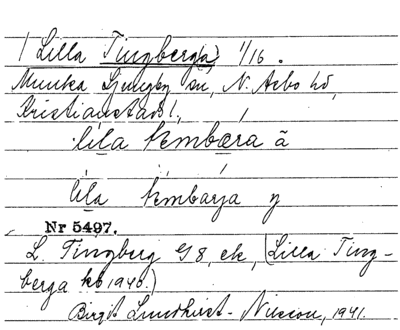 / Lilla Tingberg(a) 1/16.
Munka Ljungby sn, N. Åsbo hd,
Kristianstads l.,
lila tɩmbæra ã
lila tɩmbarja y
Nr 5497.
L. Tingberg G8, ek, (Lilla Ting-
berga kb 1946.)
Birgit Lundkvist-Nilsson, 1941.